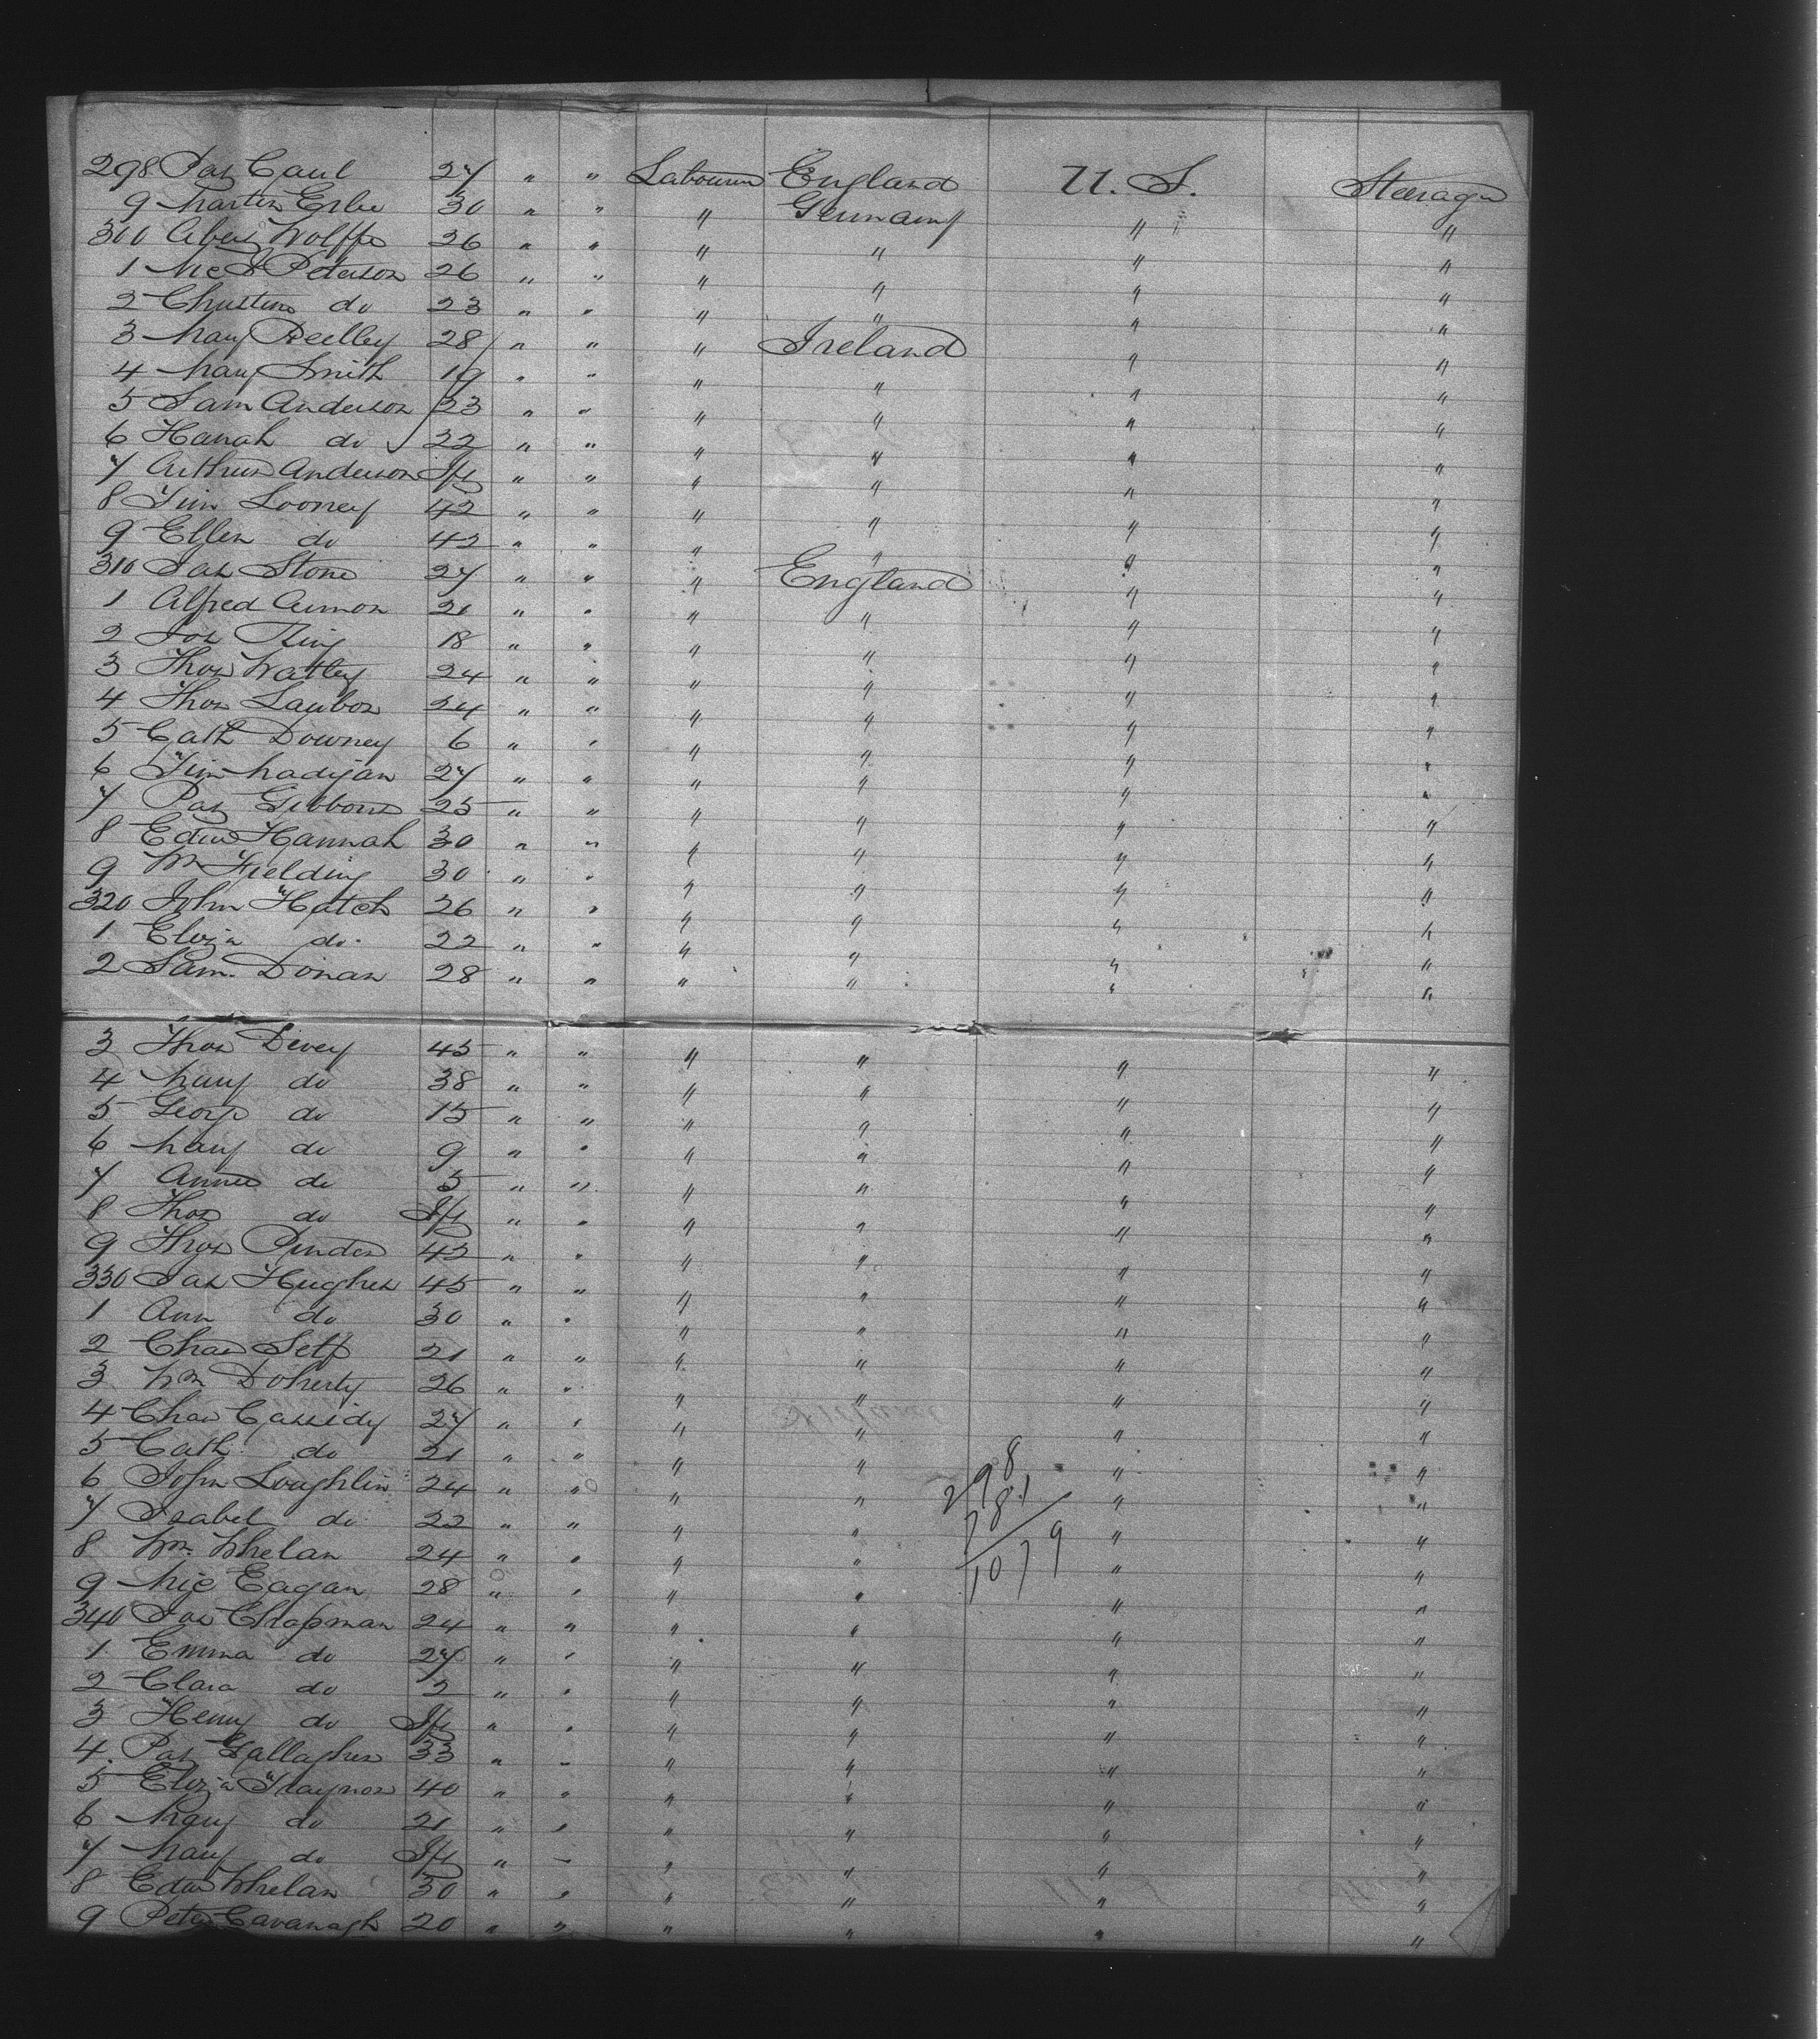 298 Pat Caul 27 " " Labourer England U. S. Steerage
9 Martin Erbe 30 " " " Germany " "
300 Albert Wolffe 26 " " " " " "
1 Peterson 26 " " " " " "
2 Christine do 23 " " " " " "
3 Mary Reilley 28 " " " Ireland " "
4 Mary Smith 19 " " " " " "
5 Sam Anderson 23 " " " " " "
6 Hanah do 22 " " " " " "
7 Arthur Anderson Inft " " " " " "
8 Tim Looney 42 " " " " " "
9 Ellen do 42 " " " " " "
310 Jas Stone 27 " " " England " "
1 Alfred 21 " " " " " "
2 Jos King 18 " " " " " "
3 Thos Watley 24 " " " " " "
4 Thos 24 " " " " " "
5 Cath Downey 6 " " " " " "
6 Tim Madigan 27 " " " " " "
7 Pat Gibbons 25 " " " " " "
8 Edw Hannah 30 " " " " " "
9 Wm Fielding 30 " " " " " "
320 John Hatch 26 " " " " " "
1 Eliza do 22 " " " " " "
2 Sam. Donan 28 " " " " " "
3 Thos Divey 45 " " " " " "
4 Mary do 38 " " " " " "
5 Georg do 15 " " " " " "
6 Mary do 9 " " " " " "
7 Annie do 5 " " " " " "
8 Thos do Inft " " " " " "
9 Thos Pinder 42 " " " " " "
330 Jas Hughes 45 " " " " " "
1 Ann do 30 " " " " " "
2 Chas Self 21 " " " " " "
3 Wm Doherty 26 " " " " " "
4 Chas Cassidy 27 " " " " " "
5 Cath do 21 " " " " " "
6 John Loughlin 24 " " " " " "
298
781
1079
7 Isabel do 22 " " " " " "
8 Wm. Whelan 24 " " " " " "
9 Mic Eagan 28 " " " " " "
340 Jas Chapman 24 " " " " " "
1 Emma do 27 " " " " " "
2 Clara do 2 " " " " " "
3 Henry do Inft " " " " " "
4 Pat Gallagher 33 " " " " " "
5 Eliza Traynor 40 " " " " " "
6 Mary do 21 " " " " " "
7 Mary do Inft " " " " " "
8 Edw Whelan 30 " " " " " "
9 Peter Cavanagh 20 " " " " " "